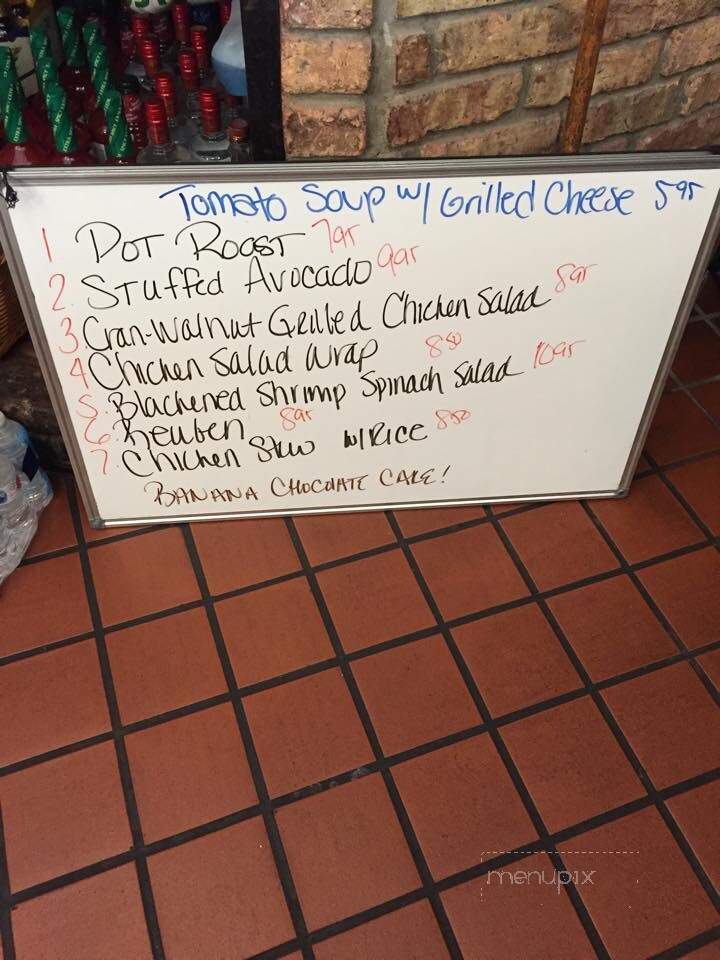 Tomato Soup w/ Grilled Cheese 5 95
1 Pot Roast 7 95
2. Stuffed Avocado 9 95
3. Cran-Walnut Grilled Chicken Salad 8 95
4 Chicken Salad Wrap 8 50
5. Blackened Shrimp Spinach Salad 10 95
6. Reuben 8 95
7. Chicken Stew w/ Rice 8 50
Banana Chocolate Cake!
menupix